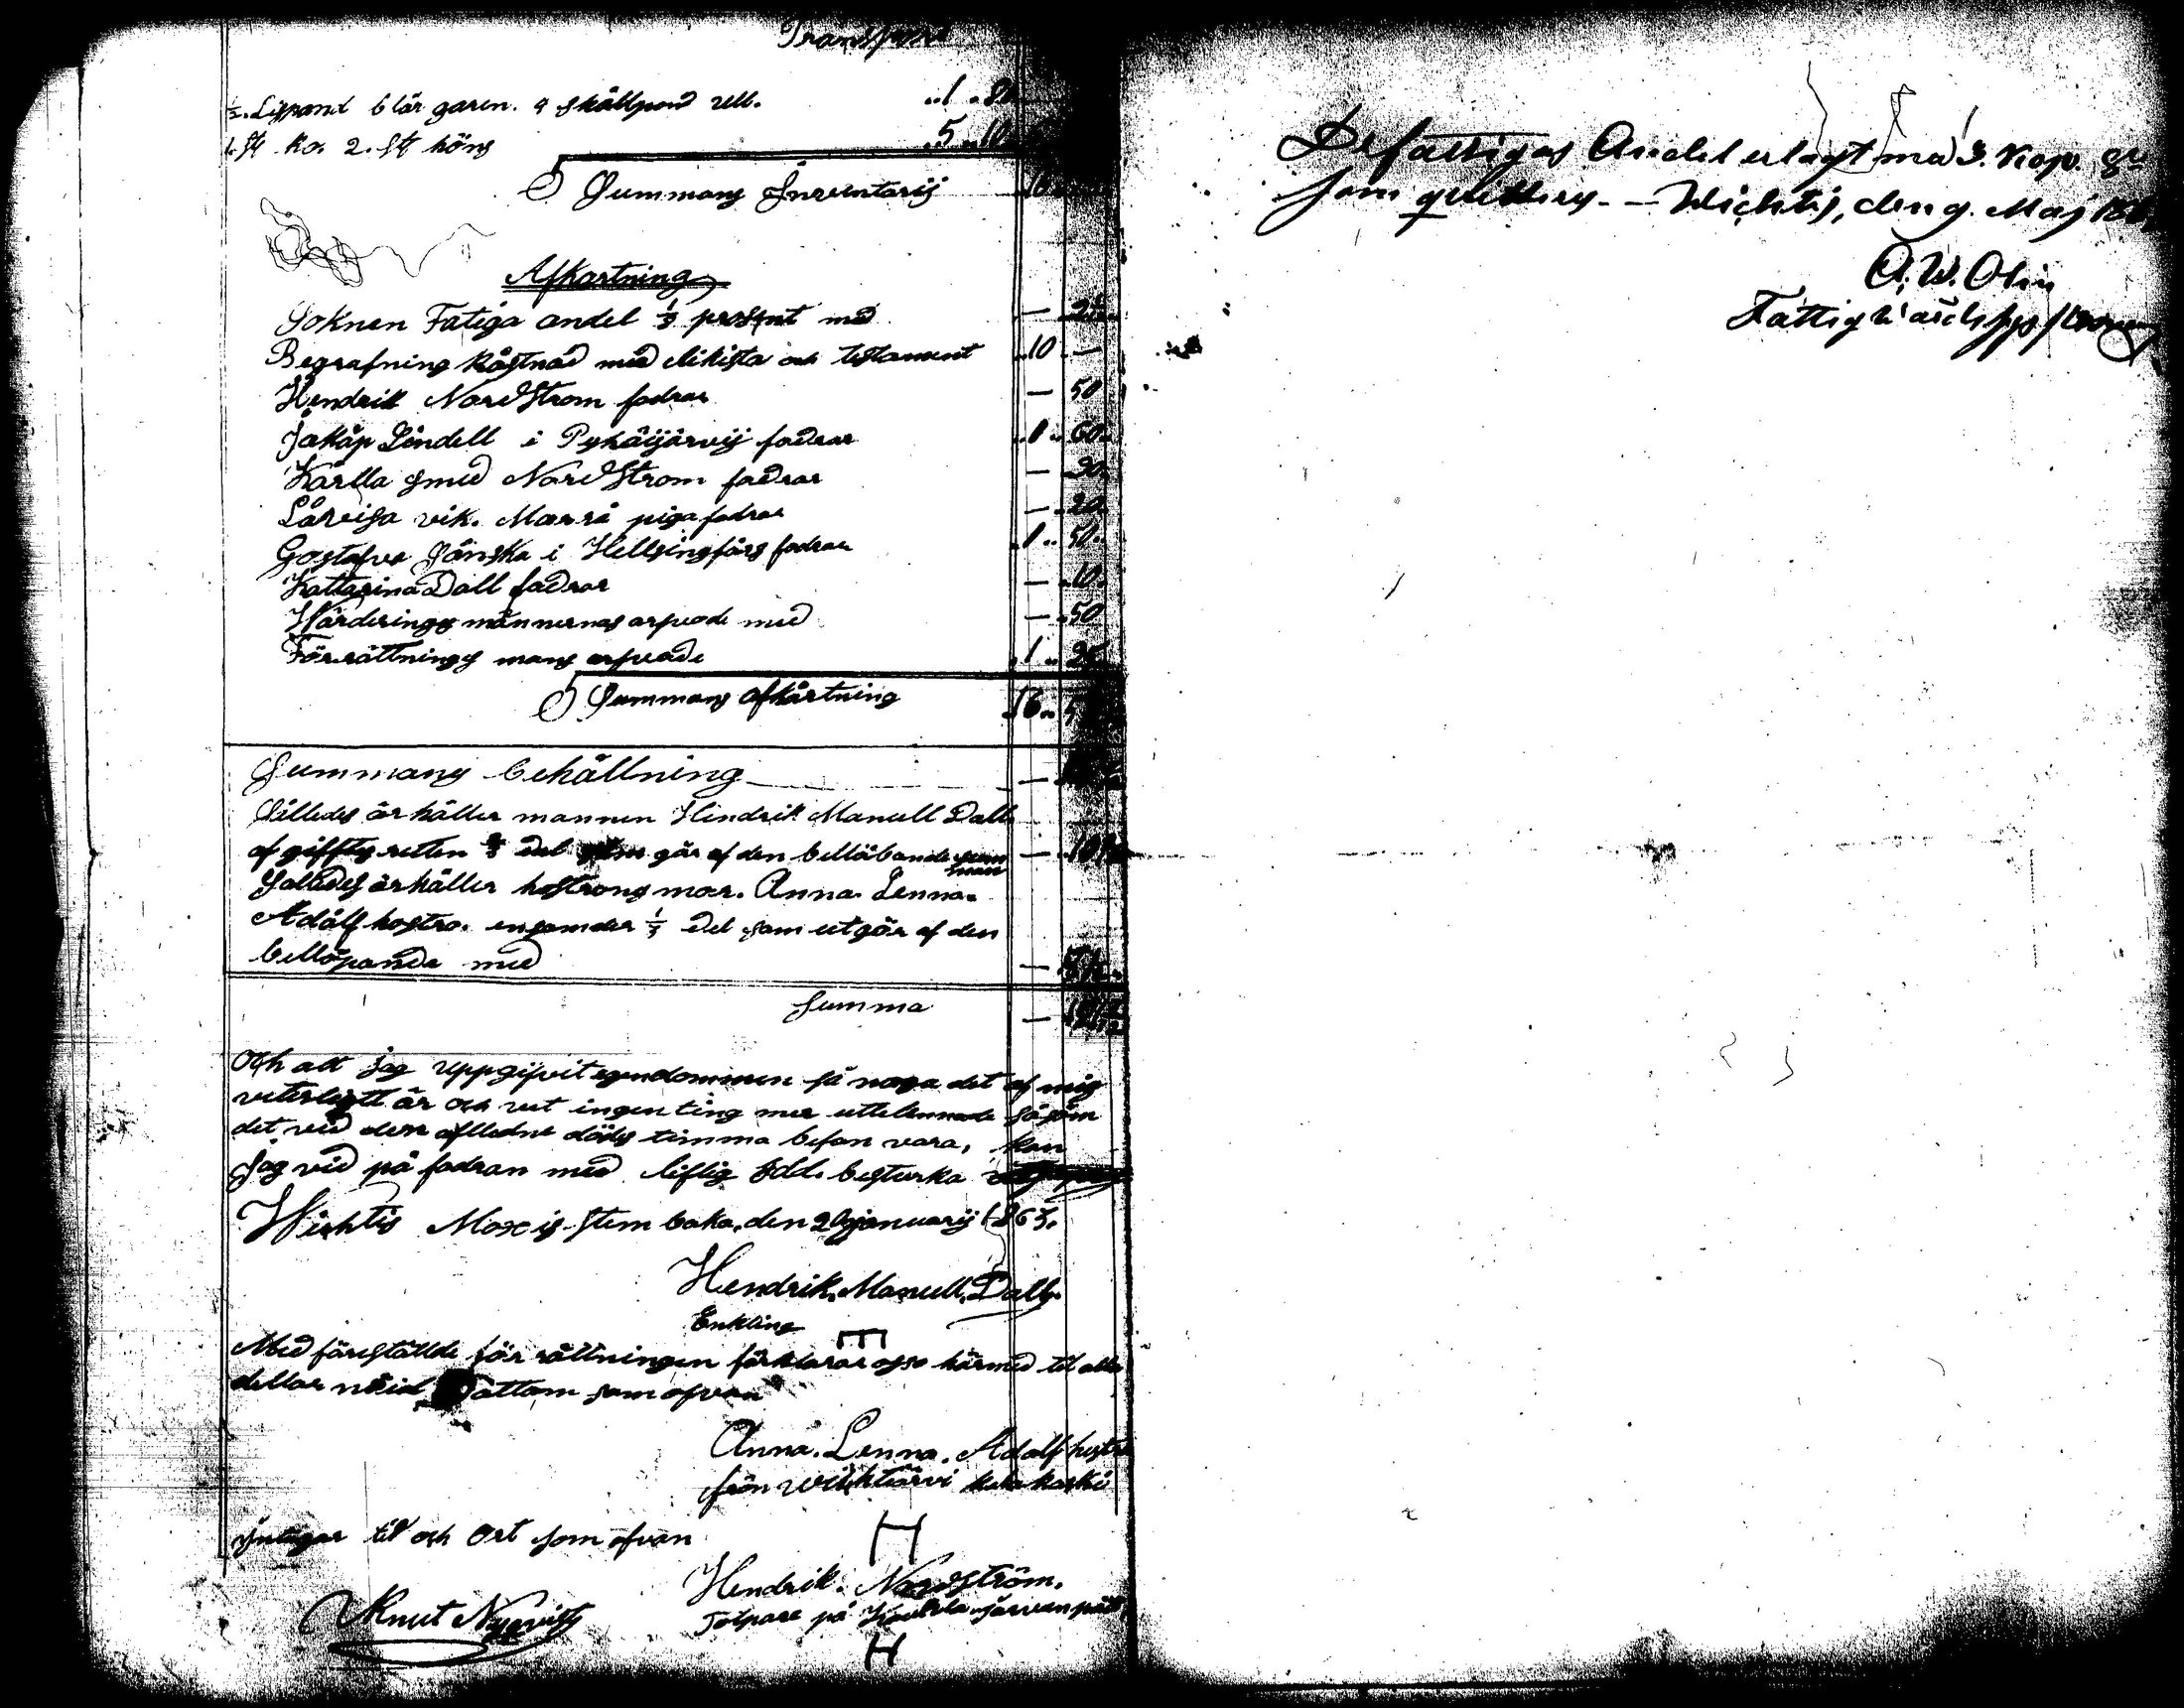 Transport
½. Lispund blår garen. 4 skållpund ull. 1
1. St ko. 2. St höns 5 10
Summans Inventarij
Afkortning
Soknen Fatiga andel ⅛ prosent med
Begrafning kåstnad med likista och testament 10 —
Hendrik Nordstrom fodrar — 50
Jakåp Lindell i Pyhäijärvij fodrar 60
Karlla smed Nordstrom fodrar — 30
Låvisa vik. piga fodrar — 20
Gostafva Jånska i Hellsingfårs fodrar 1 50
Kattarina Dall fodrar — 10
Wärderings männernas arfvode med — 50
Förrättnings mans arfvode 1 25
Summans afkårtning 16
Summans behållning —
Sålledes ärhåller mannen Hindrik Manuell Dall
af giffts retten del går af den bellöbande —
Salledes ärhåller hostrons mor. Anna Lenna
Adålf hostro. ensamder ⅓ del som utgör af den
bellöpande med —
Summa —
Och att jag uppgifvit egendommen så noga det af mig
veterligtt är och vet ingen ting mer uttelemnade såsom
det ved den aflledne döds timma befan vara, kan
Jag vid på fodran med liflig Edd. besturka
Wichtis Moxis Stem baka, den januarij 1863.
Hendrik. Manuell. Dall
Enkling
Med föreställde för rättningen förklarar oss härmed til alla
dellar nöid Dattom som ofvan
Anna. Lenna. Adolf hustro
från
Intygar til och Ort som ofvan
Hendrik. Nordström.
Torpare på
H
Knut Nyqvist
De fattigas Andel erlagt med 3. Kop. Sr
som quitteras. — Wichtis, den 9. Maj
A. W. Olin